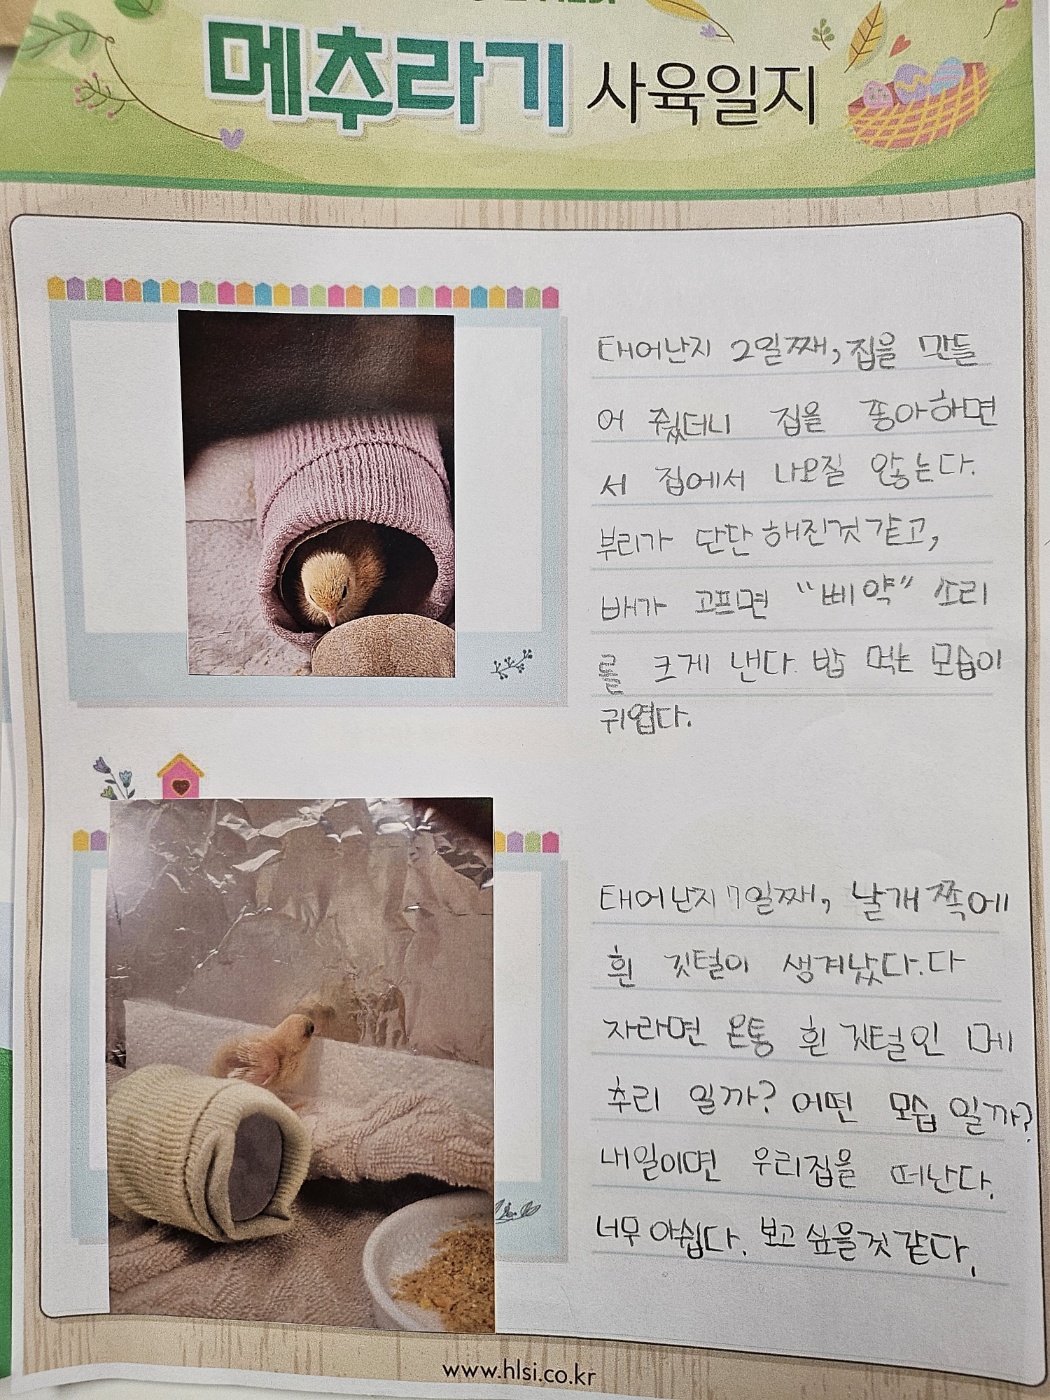 메추라기 사육일지
태어난지 2일째, 집을 만들
어 줬더니 집을 좋아하면
서 집에서 나오질 않는다.
부리가 단단해진것 같고,
배가 고프면 “삐약” 소리
를 크게 낸다. 밥 먹는 모습이
귀엽다.
태어난지 7일째, 날개 쪽에
흰 깃털이 생겨났다. 다
자라면 온통 흰 깃털인 메
추리 일까? 어떤 모습 일까?
내일이면 우리집을 떠난다.
너무 아쉽다. 보고 싶을것 같다.
www.hlsi.co.kr